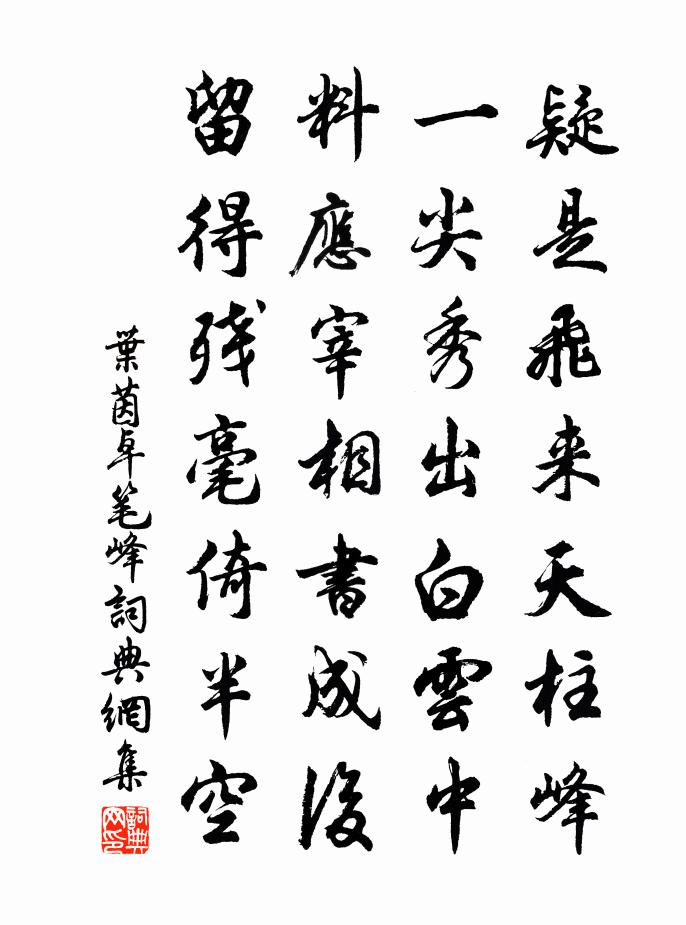 疑是飛来天柱峰
一尖秀出白雲中
料應宰相書成後
留得残毫倚半空
葉茵卓笔峰詞典網集
詞典网印